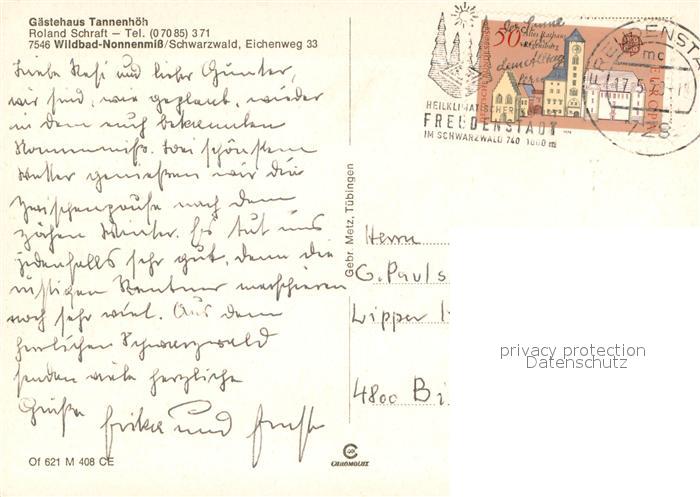 Gästehaus Tannenhöh
Roland Schraft – Tel. (0 70 85) 3 71
7546 Wildbad-Nonnenmiß/Schwarzwald, Eichenweg 33
Liebe Resi und lieber Günter,
wir sind, wie geplant, wieder
in dem euch bekannten
Nonnenmiß. Bei schönstem
Wetter genießen wir die
Zwischenpause nach dem
zähen Winter. Es tut uns
jedenfalls sehr gut, denn die
rüstigen Rentner marschieren
noch sehr viel. Aus dem
herrlichen Schwarzwald
senden viele herzliche
Grüße Erika und Ernst
Of 621 M 408 CE
Gebr. Metz, Tübingen
CHROMOLUX
50
Altes Rathaus
Regensburg
EUROPA
HEILKLIMATISCHER
FREUDENSTADT
IM SCHWARZWALD 740 1000 m
FREUDENSTA
mc
17.5.
728
Herrn
G. Pauls
Lipper
4800 Bi
privacy protection
Datenschutz